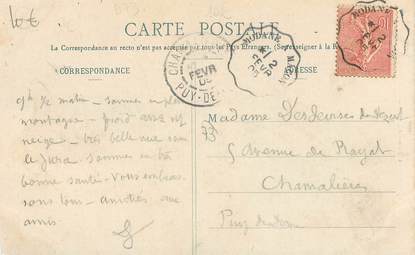 10€
CARTE POSTALE
La Correspondance au recto n'est pas acceptée par tous les Pays Étrangers (Se renseigner à la
CORRESPONDANCE
ADRESSE
MODANE
MACON
2
FEVR
MODANE
2
FEVR
PUY-DE-
10
ce matin - sommes en pleine
montagnes - froid assez vif
neige - très belle vue sur
le Jura sommes en très
bonne santé - vous embrassons
tous - amitiés aux
amis
Madame
73
5 avenue de Royat
Chamalières
Puy de dôme